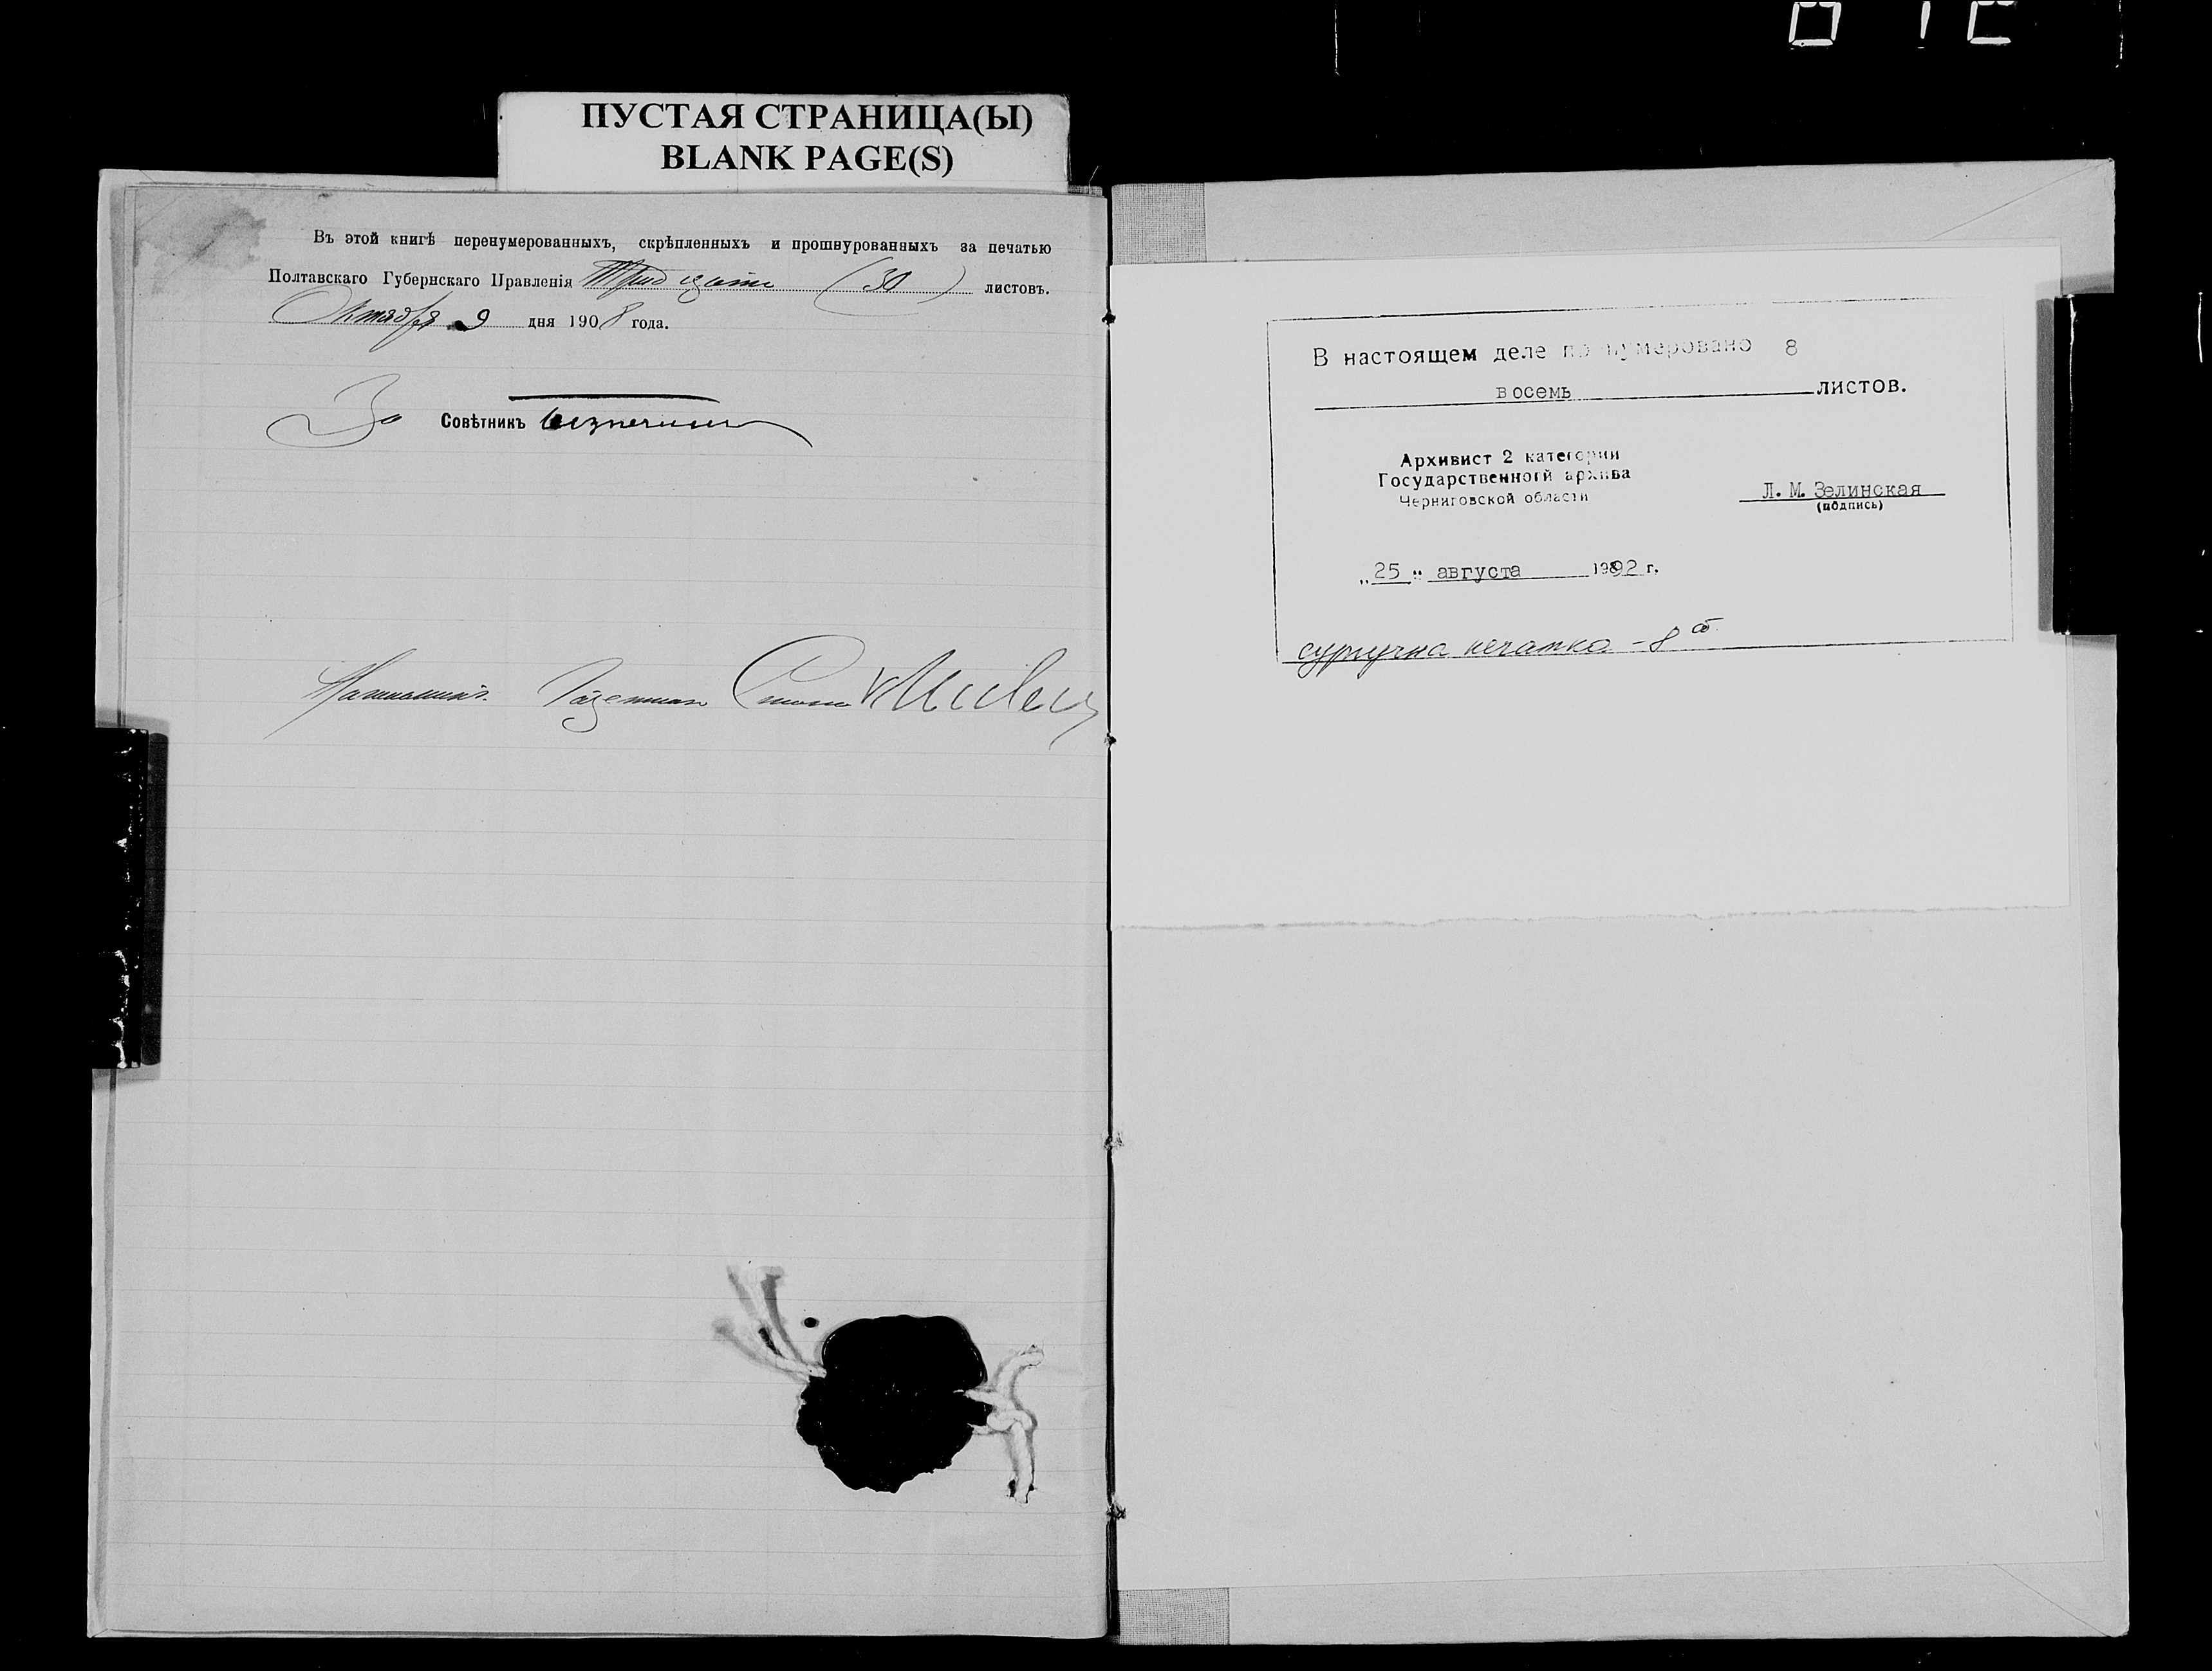 ПУСТАЯ СТРАНИЦА(Ы)
BLANK PAGE(S)
Въ этой книгѣ перенумерованныхъ, скрѣпленныхъ и прошнурованныхъ за печатью
Полтавскаго Губернскаго Правленія Тридцать (30) листовъ.
Октября 9 дня 1908 года.
За Совѣтникъ
В настоящем деле пронумеровано 8
восемь листов.
Архивист 2 категории
Государственногй архива
Черниговской области
Л. М. Зелинская
(подпись)
„25" августа 1992 г.
сургучна печатка - 8 об.